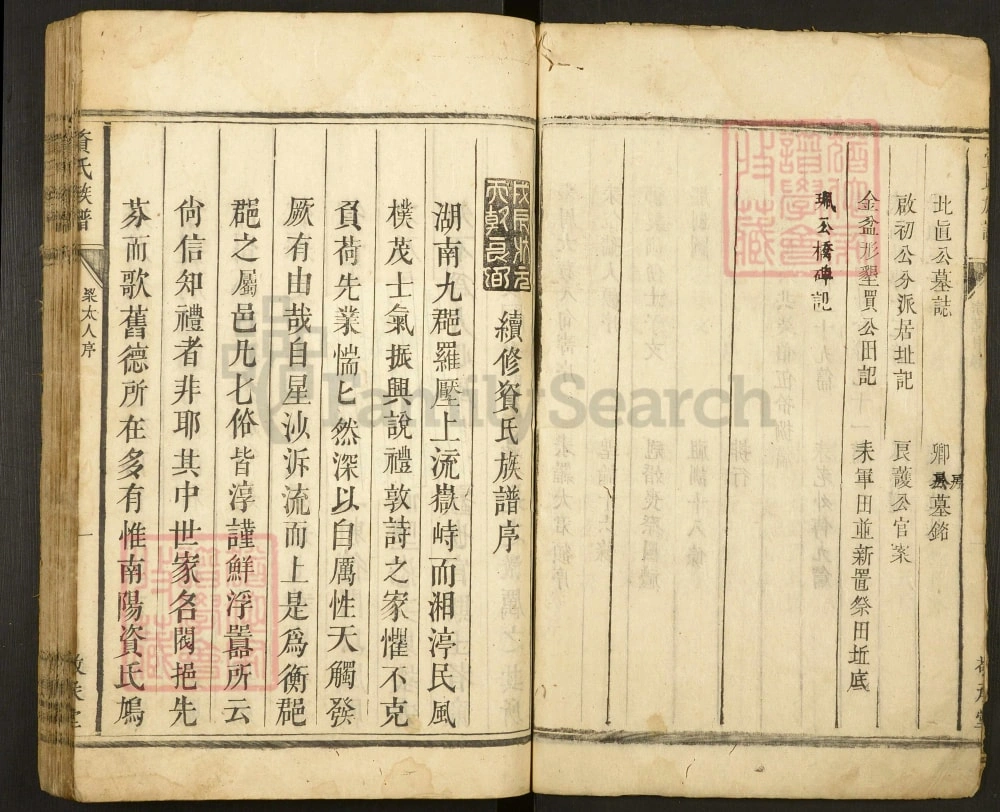 北眞公墓誌
卿公墓銘
房
啟初公分派居址記
良護公官案
金盆形墾買公田記
耒軍田並新置祭田坵底
珮公橋碑記
續修資氏族譜序
湖南九郡羅壓上流嶽峙而湘渟民風
樸茂士氣振興說禮敦詩之家懼不克
負荷先業惴匕然深以自厲性天觸發
厥有由哉自星沙泝流而上是爲衡郡
郡之屬邑九七俗皆淳謹鮮浮囂所云
尙信知禮者非耶其中世家各閥挹先
芬而歌舊德所在多有惟南陽資氏鳩
資氏族譜
梁太人序
一
敦夫堂
FamilySearch